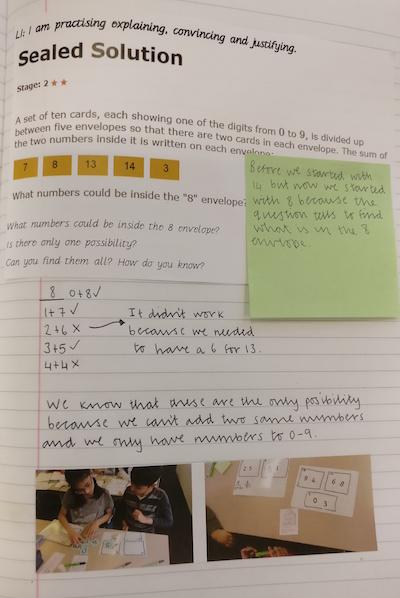 LI: I am practising explaining, convincing and justifying.
Sealed Solution
Stage: 2 ★ ★
A set of ten cards, each showing one of the digits from 0 to 9, is divided up
between five envelopes so that there are two cards in each envelope. The sum of
the two numbers inside it is written on each envelope:
7 8 13 14 3
What numbers could be inside the "8" envelope?
What numbers could be inside the 8 envelope?
Is there only one possibility?
Can you find them all? How do you know?
Before we started with
14 but now we started
with 8 because the
question tells to find
what is in the 8
envlope.
8 0+8✓
1+7 ✓ It didn't work
2+6 ✗ because we needed
3+5 ✓ to have a 6 for 13.
4+4 ✗
We know that these are the only posibility
because we can't add two same numbers
and we only have numbers to 0-9.